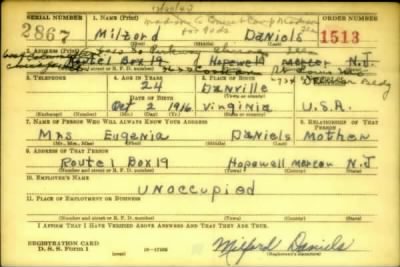 SERIAL NUMBER 1. NAME (Print) ORDER NUMBER
2867 Milford Daniels 1513
(First) (Middle) (Last)
2. ADDRESS (Print)
Route 1 Box 19 Hopewell Mercer N.J.
(Number and street or R. F. D. number) (Town) (County) (State)
3. TELEPHONE 4. AGE IN YEARS 5. PLACE OF BIRTH 6. COUNTRY OF CITIZENSHIP
24 Danville
DATE OF BIRTH
Oct 2 1916 Virginia U.S.A.
(Exchange) (Number) (Mo.) (Day) (Yr.) (State or country)
7. NAME OF PERSON WHO WILL ALWAYS KNOW YOUR ADDRESS 8. RELATIONSHIP OF THAT PERSON
Mrs Eugenia Daniels Mother
(Mr., Mrs., Miss) (First) (Middle) (Last)
9. ADDRESS OF THAT PERSON
Route 1 Box 19 Hopewell Mercer N.J
(Number and street or R. F. D. number) (Town) (County) (State)
10. EMPLOYER'S NAME
Unoccupied
11. PLACE OF EMPLOYMENT OR BUSINESS
(Number and street or R. F. D. number) (Town) (County) (State)
I AFFIRM THAT I HAVE VERIFIED ABOVE ANSWERS AND THAT THEY ARE TRUE.
REGISTRATION CARD
D. S. S. Form 1 Milford Daniels
(Registrant's signature)